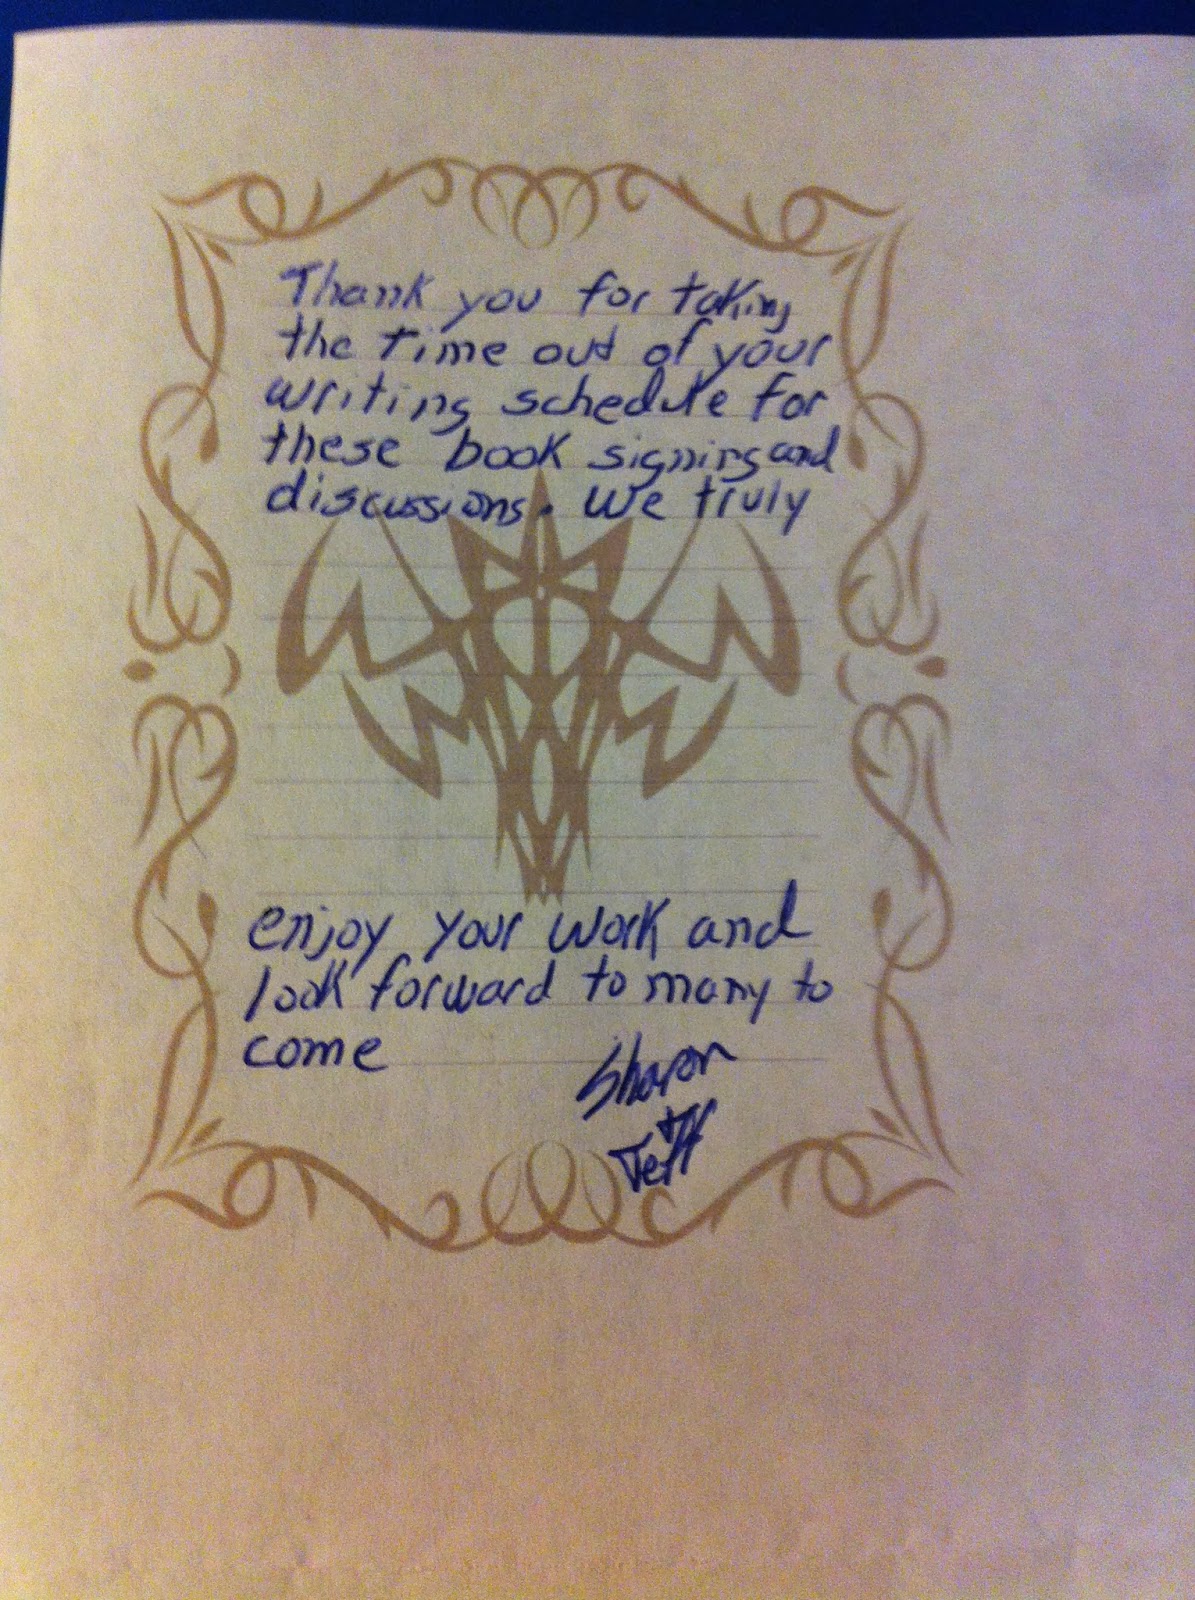 Thank you for taking
the time out of your
writing schedule for
these book signings and
discussions. We truly
enjoy your work and
look forward to many to
come
Sharon
+
Jeff